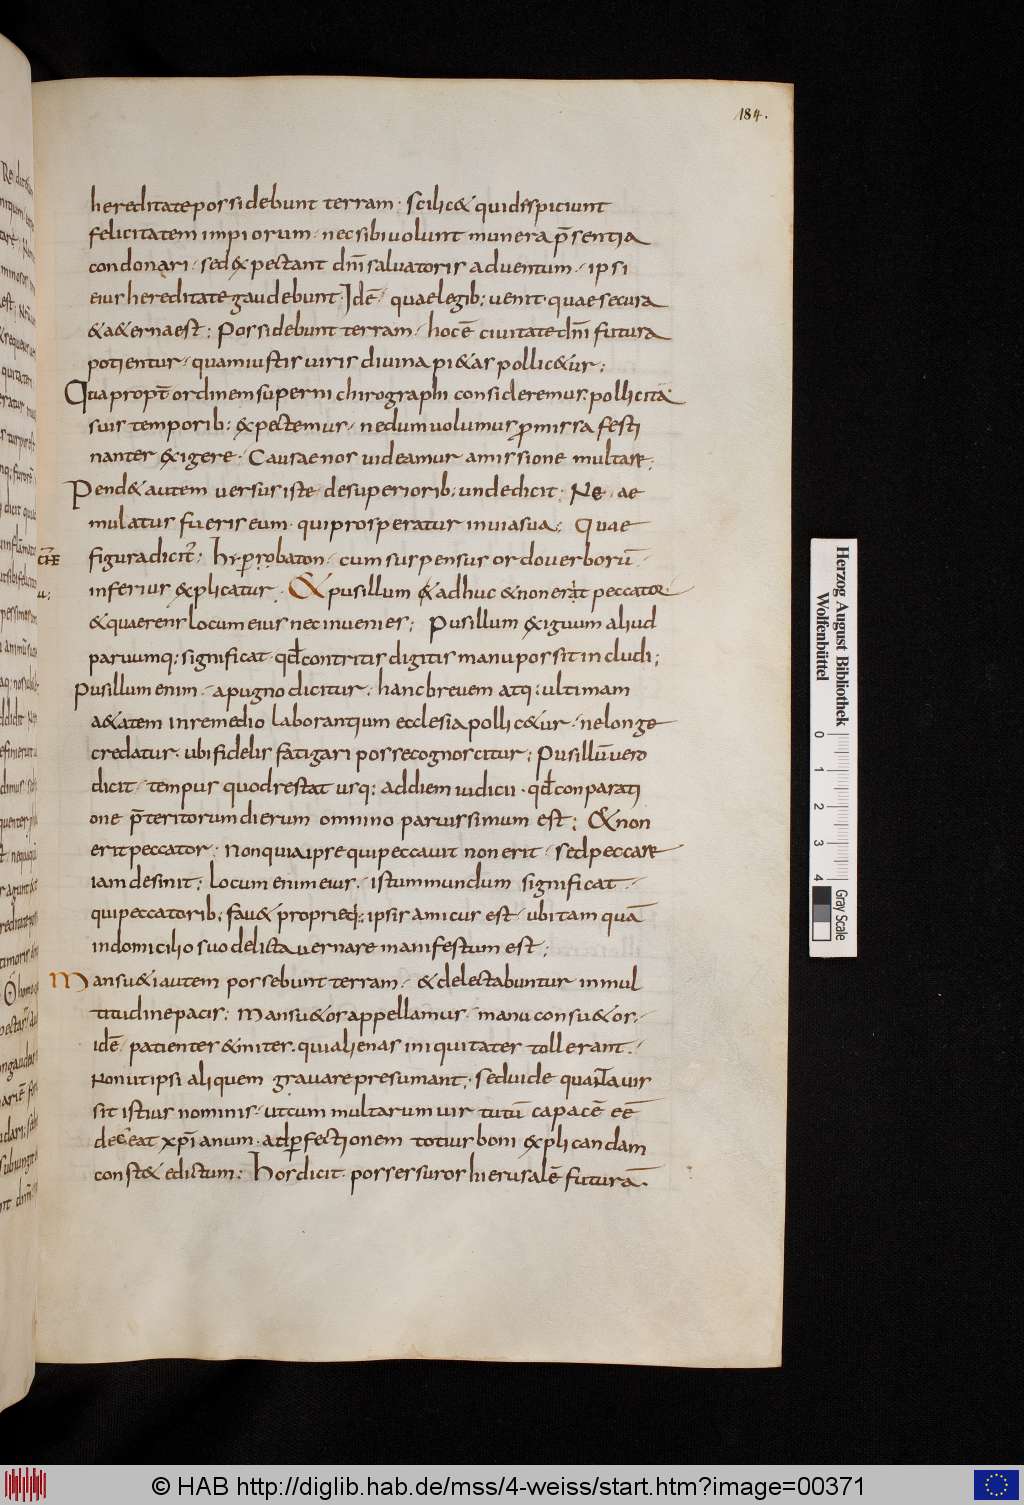 184.
hereditate possidebunt terram · scilic& qui despiciunt
felicitatem impiorum · nec sibi uolunt munera p̄sentia
condonari · sed expectant dn̄i saluatoris aduentum · ipsi
eius hereditate gaudebunt · Id ē · quae legib; uenit · quae secura
& a&erna est; Possidebunt terram · hoc ē ciuitate dn̄i futura
potientur · quam iustis uiris diuina pi&as pollic&ur;
Quapropt̄ ordinem superni chirographi consideremus · pollicita
suis temporib; expectemus · ne dum uolumus p̱missa festi
nanter exigere · Causae nos uideamur amissione multare;
Pend& autem uersus iste · de superiorib; unde dicit · Ne ae
mulatus fueris eum · qui prosperatur in uia sua; Quae
figura dicit̄; hiperobaton · cum suspensus ordo uerborū ·
inferius explicatur · & pusillum & adhuc & non erit peccator ·
& quaeres locum eius nec inuenies; Pusillum exiguum aliud
paruumq; significat · qđ contritis digitis manu possit includi;
Pusillum enim · a pugno dicitur · hanc breuem atq; ultimam
a&atem in remedio laborantium ecclesia pollic&ur · ne longe
credatur · ubi fidelis fatigari posse cognoscitur; Pusillū uero
dicit · tempus quod restat usq; ad diem iudicii · qđ conparati
one p̄teritorum dierum omnino paruissimum est; & non
erit peccator · Non quia ipse qui peccauit non erit · sed peccare
iam desinit; Locum enim eius · istum mundum significat ·
qui peccatoribus; fau& proprieq; ipsis amicus est · ubi tam quā
in domicilio suo delicta uernare manifestum est;
Mansu&i autem possebunt terram · & delectabuntur in mul
titudine pacis; Mansu&os appellamus · manu consu&os ·
id ē · patienter & miter · qui alienas iniquitates tollerant ·
Non ut ipsi aliquem grauare presumant · sed uide quanta uis
sit istius nominis · ut cum multarum uir tutū capacē eē
deceat xp̄ianum · ad perfectionem totius boni explicandam
const& edictum; Hos dicit · possessuros hierusalē futurā ·
Herzog August Bibliothek
Wolfenbüttel
0 1 2 3 4 Gray Scale
© HAB http://diglib.hab.de/mss/4-weiss/start.htm?image=00371